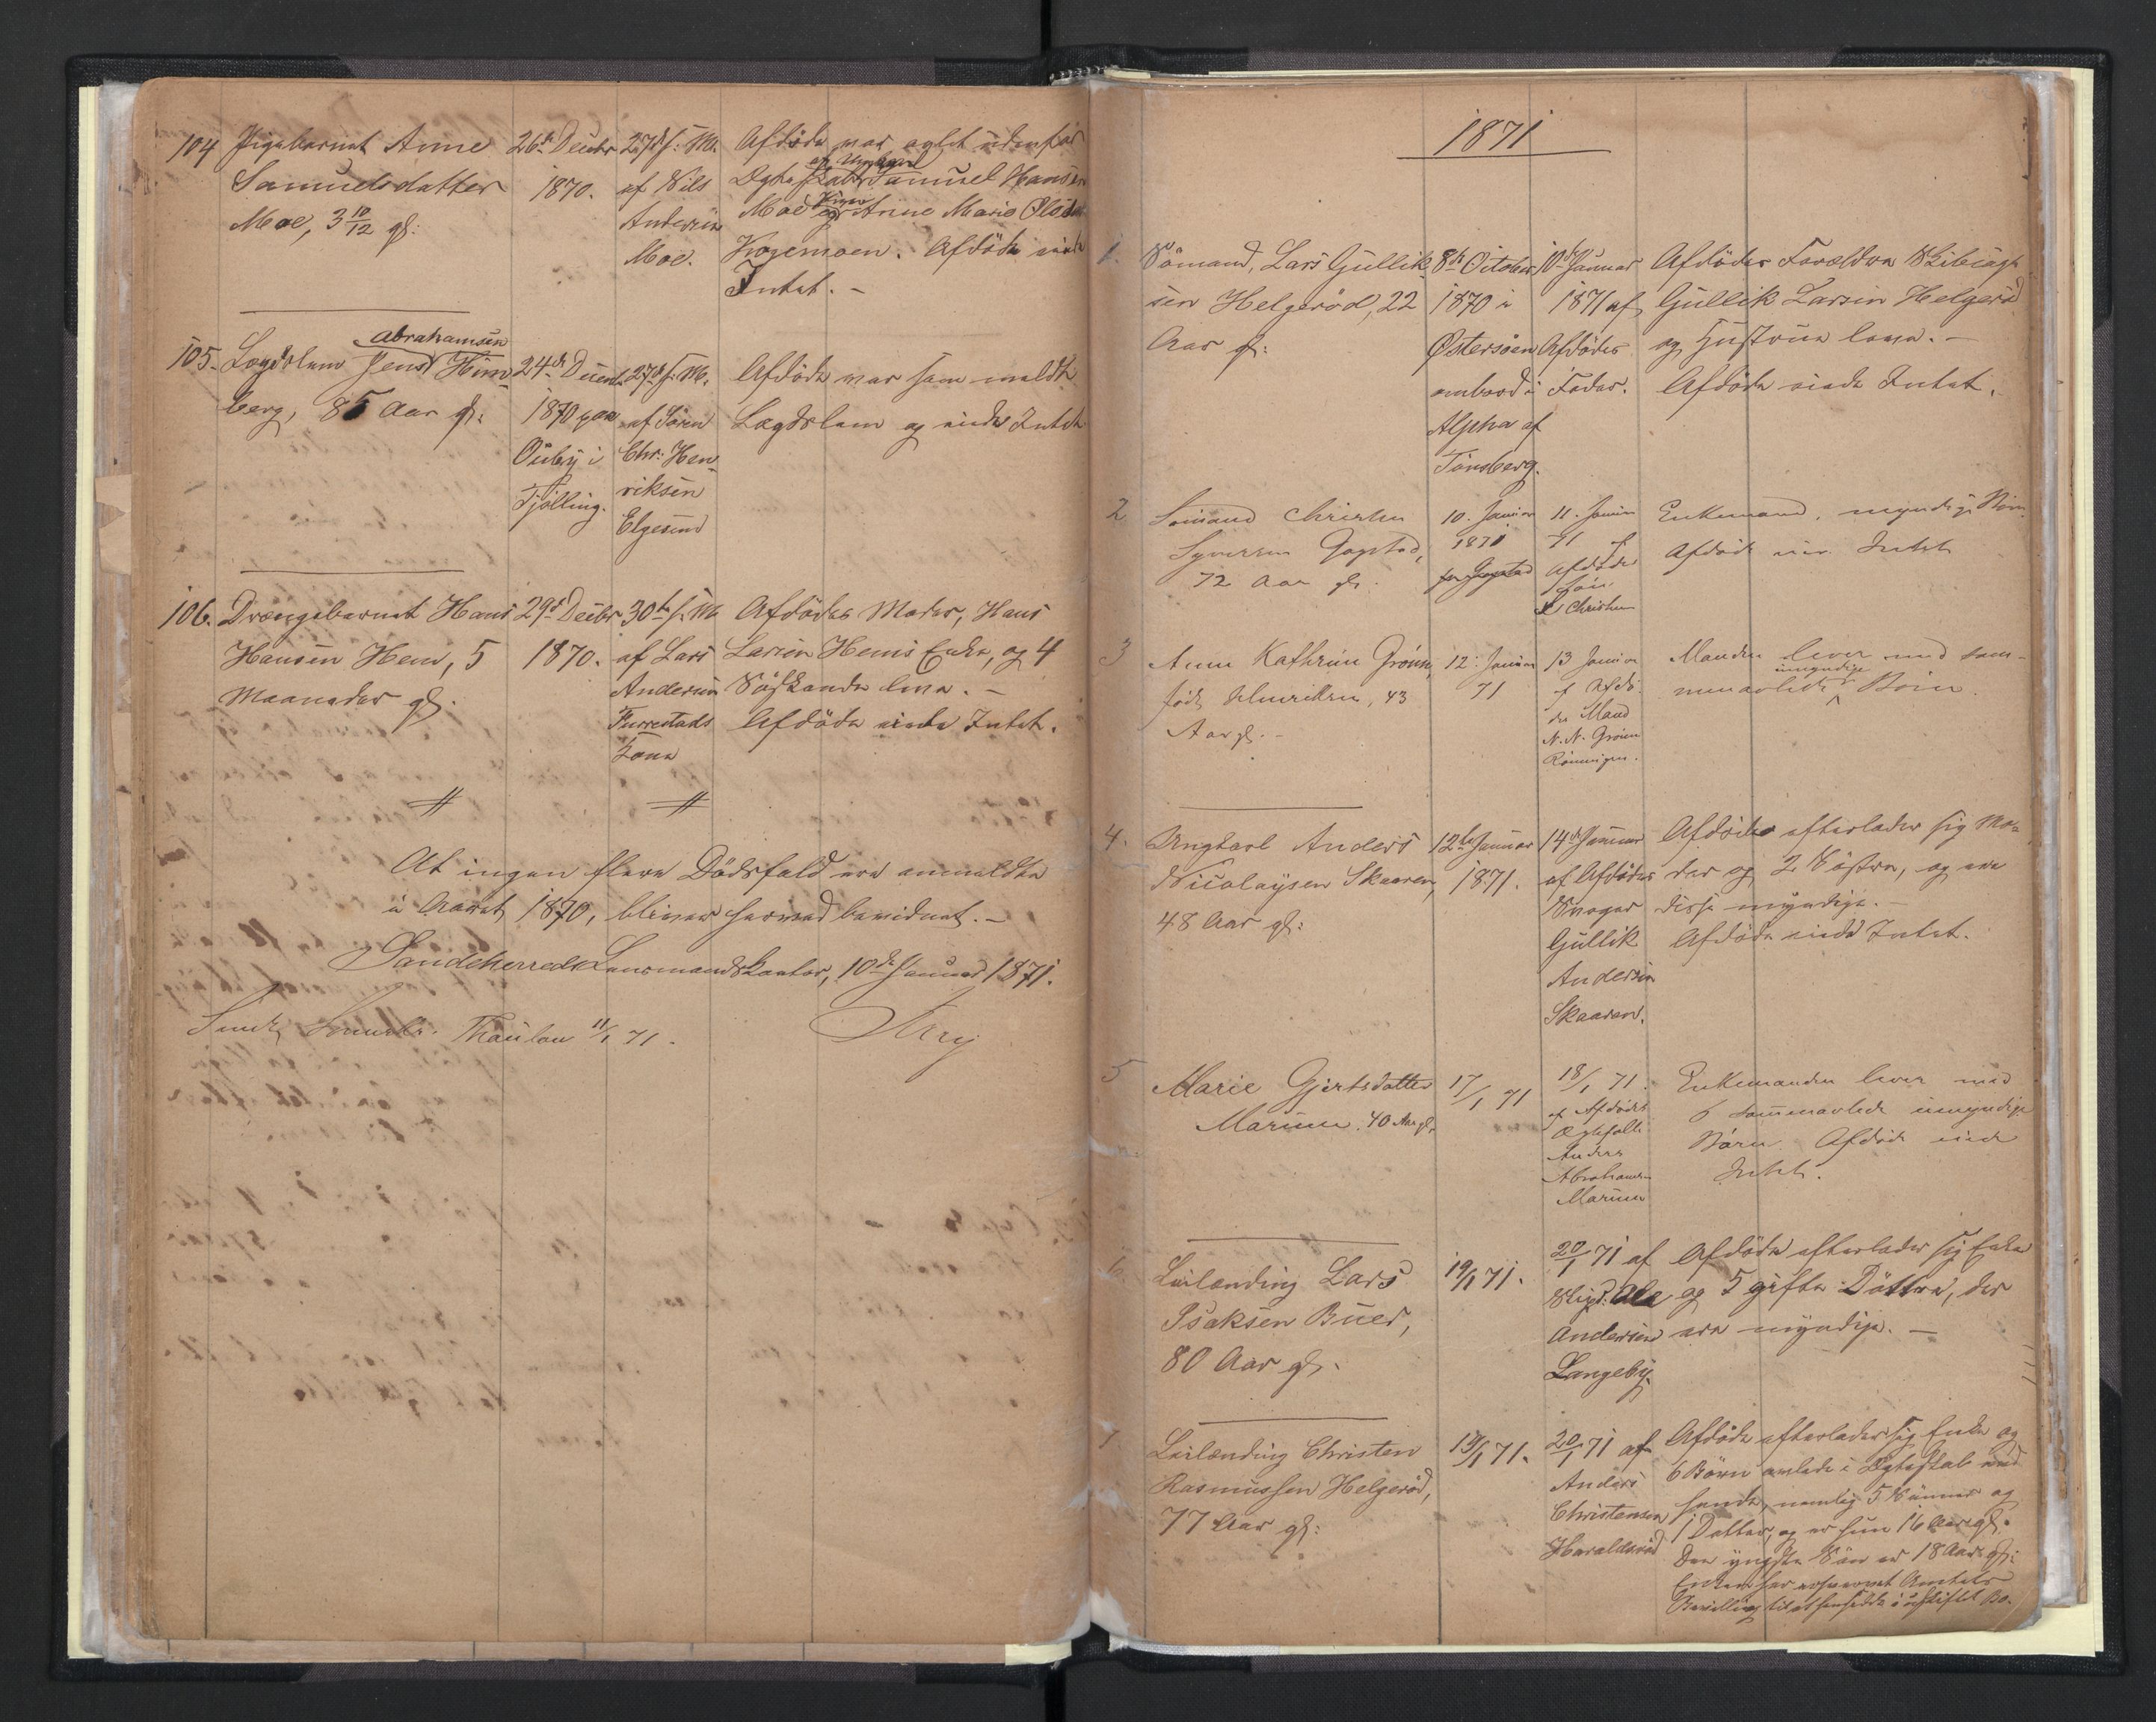 104 Pigebarnet Anne
Samuelsdatter
Moe, 3 10/12 gl:
26de Decbr
1870.
27de s. M.
af Nils
Andersen
Moe.
Afdöde var avlet udenfor
Ægteskab af Ungkarl Samuel Hansen
Moe og Anne Marie Olsdtr
Hagemoen. Afdöde eiede
Intet. -
105. Lægdslem Jens Abrahamsen Him-
berg, 85 Aar gl:
24de Decembr
1870 paa
Ouby i
Tjølling.
27de s. M.
af Sören
Chr: Hen-
riksen
Elgesem
Afdöde var som meldt
Lægdslem og eiede Intet
106. Drengebarnet Hans
Hansen Hem, 5
Maaneder gl.
29de Decbr
1870.
30te s. M
af Lars
Andersen
Furustads
Kone
Afdödes Moder, Hans
Larsen Hems Enke, og 4
Södskende leve. -
Afdöde eiede Intet.
At ingen flere Dödsfald ere anmeldte
i Aaret 1870, bliver herved bevidnet. -
Sandeherreds Lensmandskontor, 10de Januar 1871.
Thaulow 11/1 71.
1871
1. Sömand, Lars Gullik-
sen Helgeröd, 22
Aar gl:
8de October
1870 i
Østersøen
ombord i
Alpha af
Tönsberg.
10de Januar
1871 af
Afdödes
Fader.
Afdödes Forældre
Gullik Larsen Helgeröd
og Hustrue leve. -
Afdöde eiede Intet.
2 Sömand Christen
Syvertsen Gogstad,
72 Aar gl.
10. Januar
1871
paa Gogstad
11. Januar
71 af
Afdödes
Sön
L Christensen
Enkemand, myndige Börn
Afdöde eier Intet
3 Anne Kathrine Grönn,
födt Henriksen, 43
Aar gl. -
12. Januar
71
13 Januar
af Afdö-
des Mand
N. N. Grönn
Rönningen.
Manden lever med sam-
menavlede umyndige Börn.
4. Ungkarl Anders
Nicolaysen Skaaren,
48 Aar gl:
12te Januar
1871.
14de Januar
af Afdödes
Svoger
Gullik
Andersen
Skaaren.
Afdöde efterlader sig Mo-
der og 2 Söstre, og ere
disse myndige. -
Afdöde eiede Intet.
5 Marie Gjertsdatter
Marum. 40 Aar gl.
17/1 71
18/1 71.
af Afdödes
Ægtefælle
Anders
Abrahamsen
Marum
Enkemanden lever med
6 sammenavlede umyndige
Börn Afdöde eiede
Intet.
6. Leilænding Lars
Isaksen Buer,
80 Aar gl.
19/1 71.
20/1 71 af
Ole
Andersen
Langeby.
Afdöde efterlader sig Enke
og 5 gifte Döttre, der
ere myndige. -
7. Leilænding Christen
Rasmussen Helgeröd,
77 Aar gl:
19/1 71.
20/1 71 af
Anders
Christensen
Haraldsröd
Afdöde efterlader sig Enke og
6 Börn avlede i Ægteskab med
hende, nemlig 5 Sönner og
1 Datter, og er hun 16 Aar gl.
Den yngste Sön er 18 Aar gl:
Enken har erhvervet Amtets
Bevilling til at hensidde i uskiftet Bo.